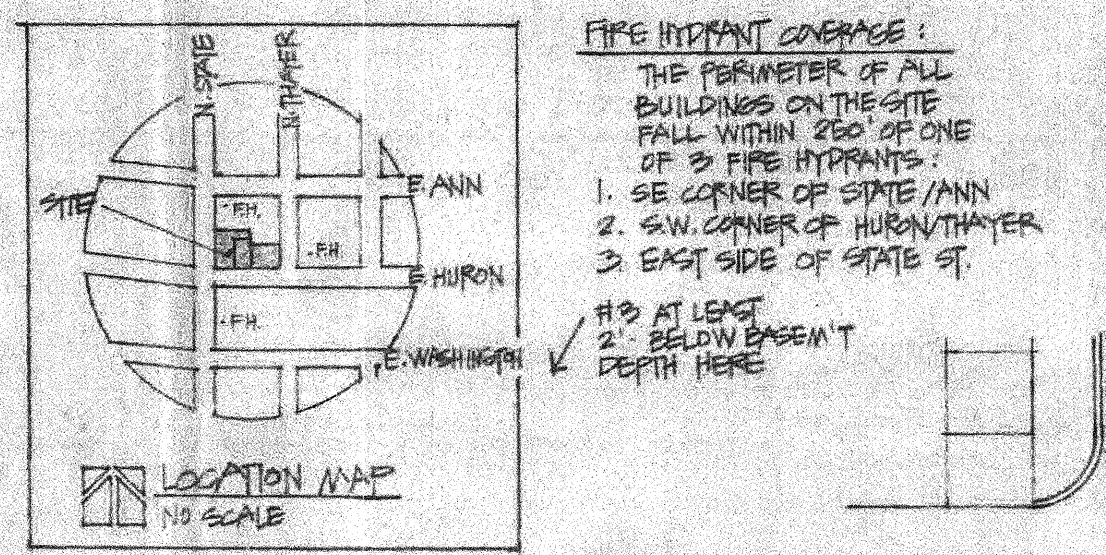 N. STATE
N. THAYER
E. ANN
SITE
F.H.
F.H.
E. HURON
F.H.
E. WASHINGTON
LOCATION MAP
NO SCALE
FIRE HYDRANT COVERAGE :
THE PERIMETER OF ALL
BUILDINGS ON THE SITE
FALL WITHIN 250' OF ONE
OF 3 FIRE HYDRANTS :
1. SE CORNER OF STATE/ANN
2. S.W. CORNER OF HURON/THAYER
3. EAST SIDE OF STATE ST.
#3 AT LEAST
2'- BELOW BASEM'T
DEPTH HERE